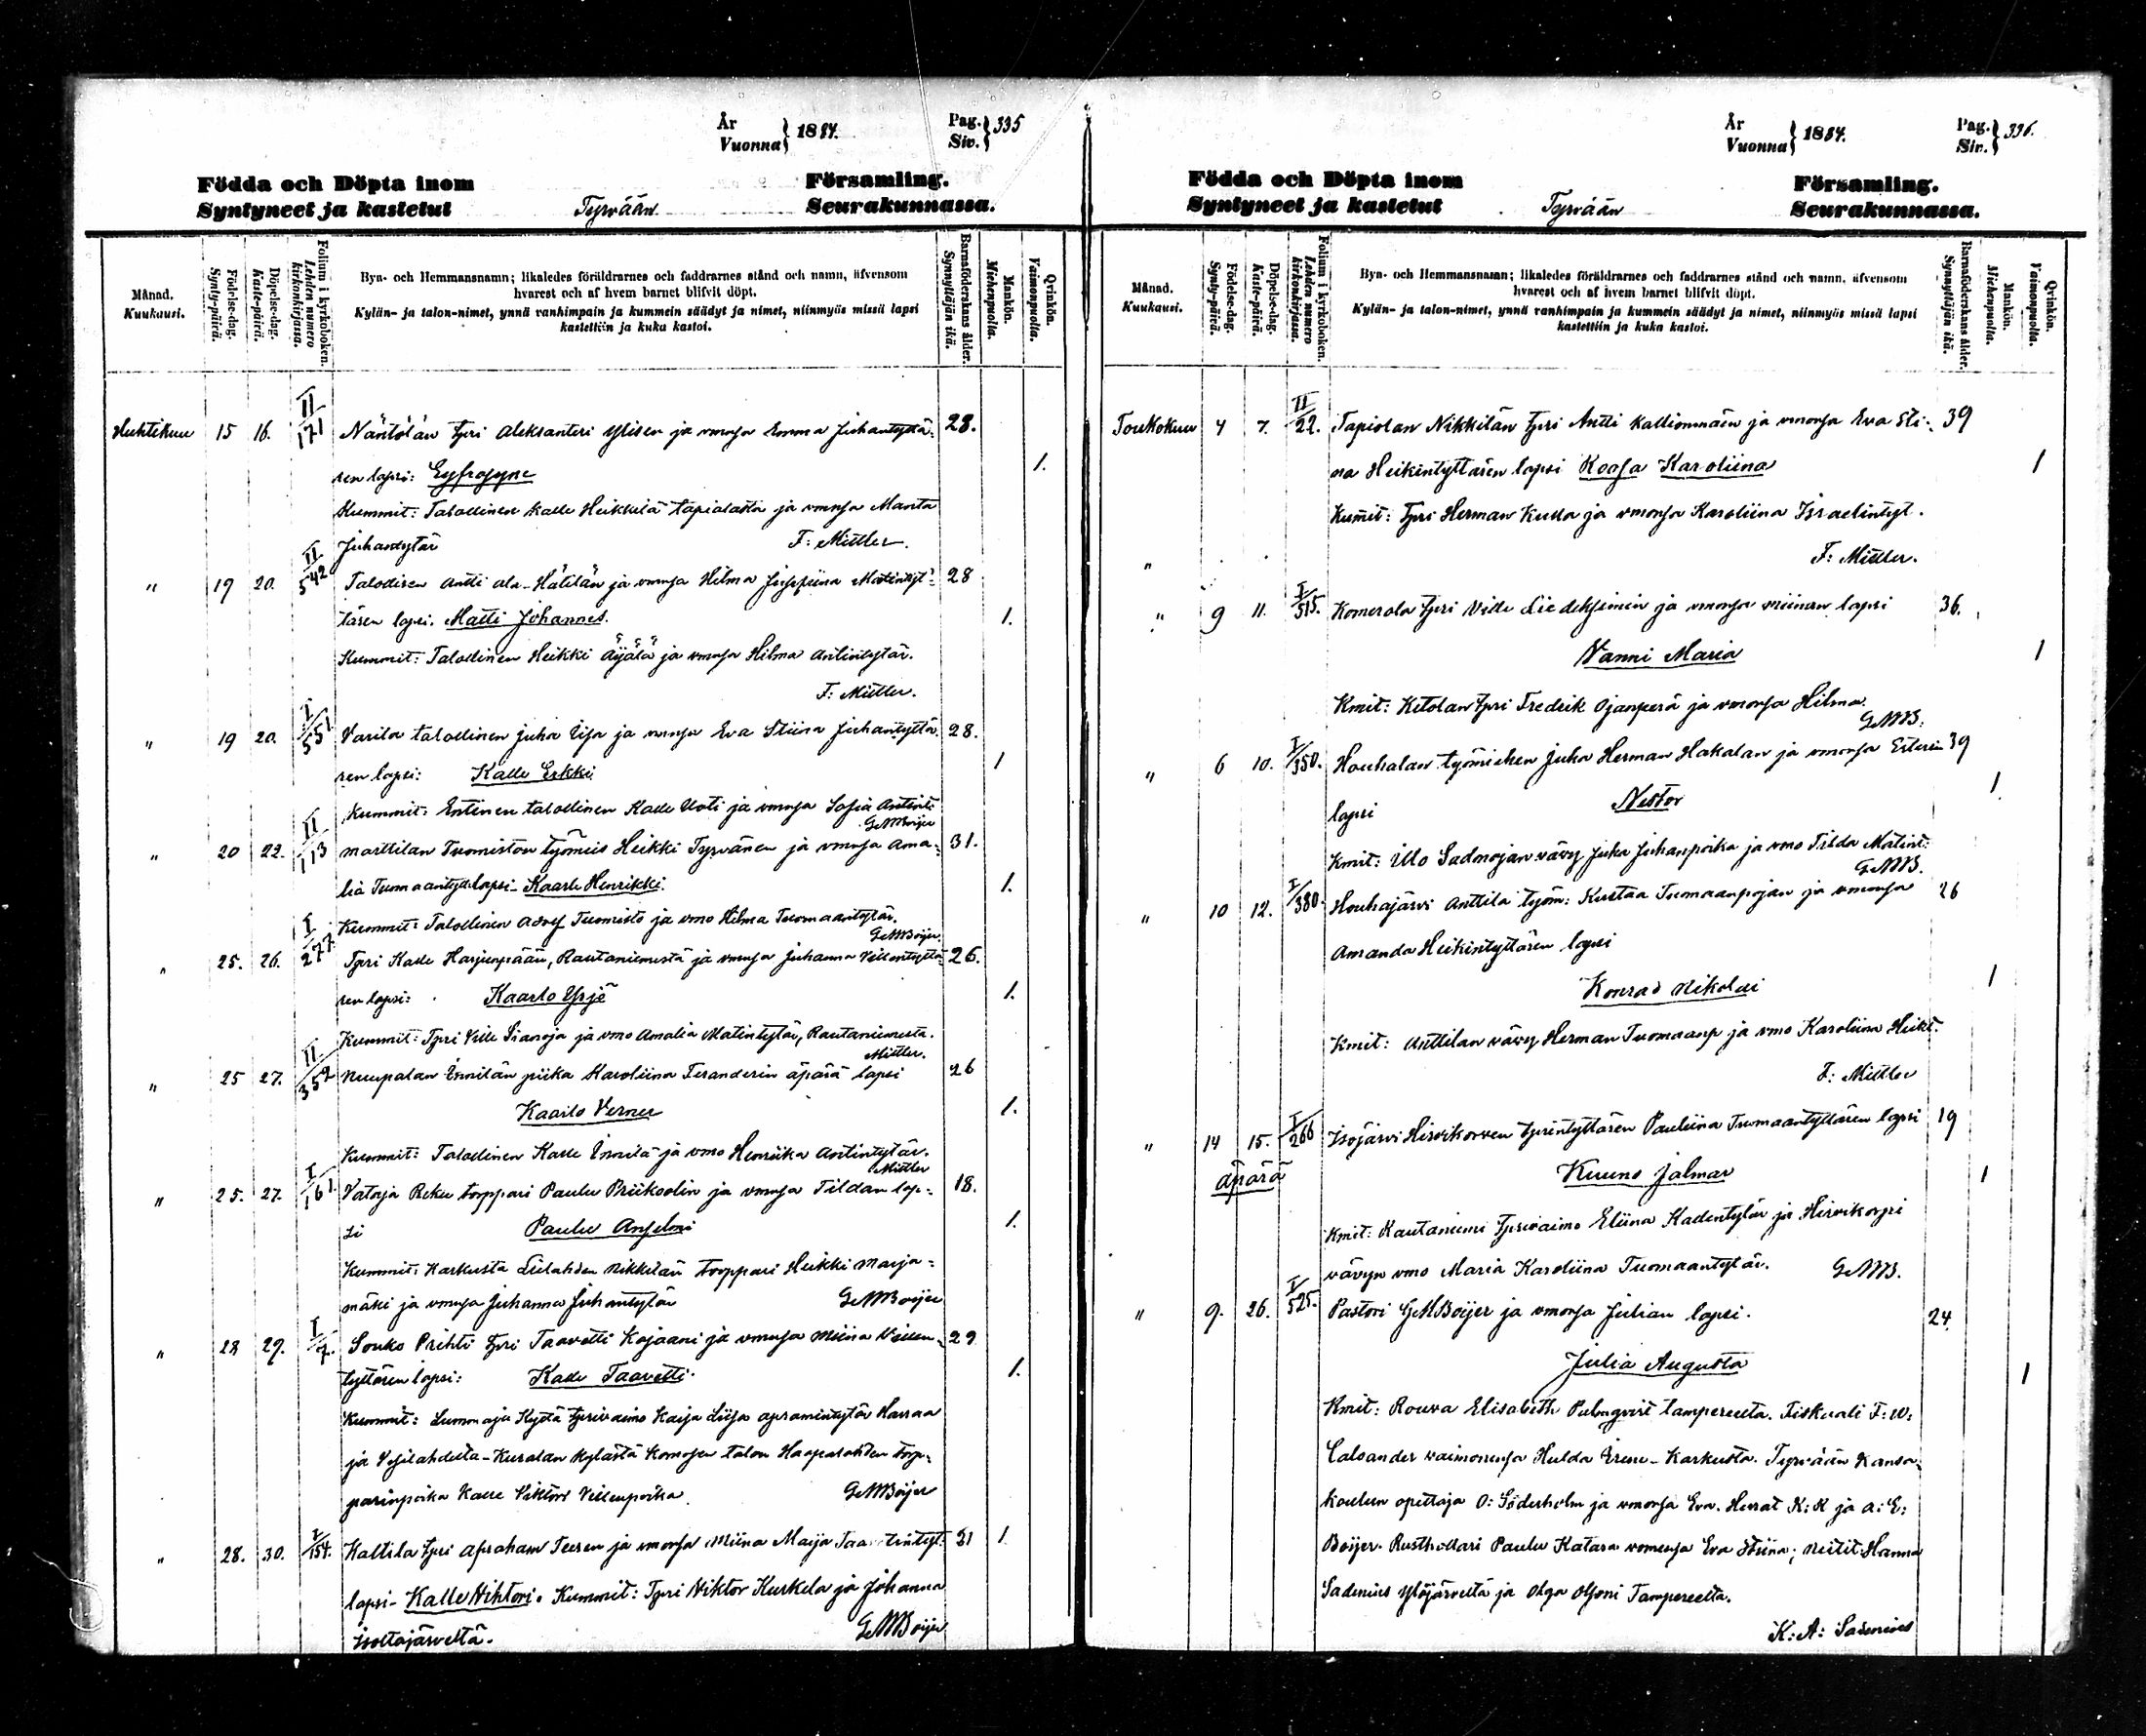 År
Vuonna } 1884.
Pag.
Siv. } 335
Födda och Döpta inom Församling.
Syntyneet ja kastetut Tyrvään Seurakunnassa.
Månad.
Kuukausi.
Födelse-dag.
Synty-päivä.
Döpelse-dag.
Kaste-päivä.
Folium i kyrkoboken.
Lehden numero kirkonkirjassa.
Byn- och Hemmansnamn; likaledes föräldrarnes och faddrarnes stånd och namn, äfvensom
hvarest och af hvem barnet blifvit döpt.
Kylän- ja talon-nimet, ynnä vanhimpain ja kummein säädyt ja nimet, niinmyös missä lapsi
kastettiin ja kuka kastoi.
Barnaföderskans ålder.
Synnyttäjän ikä.
Mankön.
Miehenpuolta.
Qvinkön.
Vaimonpuolta.
Huhtikuu 15 16. II/171 Näntölän tpri Aleksanteri Ylisen ja vmnsa Emma Juhantyttä- 28.
ren lapsi: Eyfrosyne 1.
Kummit: Talollinen Kalle Heikkilä Tapiolasta ja vmnsa Manta
Juhantytär F: Mittler.
" 19 20. II/542 Talollisen Antti Ala-Hätilän ja vmnsa Hilma Josefiina Matintyt- 28
tären lapsi. Matti Johannes. 1.
Kummit: Talollinen Heikki Äijälä ja vmnsa Hilma Antintytär.
F: Mittler.
" 19 20. I/551 Varila talollinen Juha Uja ja vmnsa Eva Stiina Juhantyttä- 28.
ren lapsi: Kalle Erkki 1
Kummit: Entinen talollinen Kalle Uoti ja vmnsa Sofia Antint.
GMBoijer
" 20 22. II/113 Marttilan Tuomiston työmies Heikki Tyrvänen ja vmnsa Ama- 31.
lia Tuomaantyt. lapsi- Kaarle Henrikki. 1.
Kummit: Talollinen Adolf Tuomisto ja vmo Hilma Tuomaantytär.
GMBoijer
" 25. 26. I/277. Tpri Kalle Harjunpään, Rautaniemestä ja vmnsa Juhanna Villentyttä- 26.
ren lapsi: Kaarlo Yrjö 1.
Kummit: Tpri Ville Sianoja ja vmo Amalia Matintytär, Rautaniemestä.
Mittler.
" 25 27. II/352 Nuupalan Ennilän piika Karoliina Feranderin äpärä lapsi 26
Kaarlo Verner 1.
Kummit: Talollinen Kalle Ennilä ja vmo Henriika Antintytär.
Mittler
" 25. 27. I/161. Vatoja Reku torppari Paulu Priikoolin ja vmnsa Tildan lap- 18.
si Paulu Anselmi 1.
Kummit: Karkusta Lielahden Nikkilän torppari Heikki Marja-
mäki ja vmnsa Juhanna Juhantytär GMBoijer
" 28 29. I/7. Souko Prihti tpri Taavetti Kojaani ja vmnsa Miina Villen- 29
tyttären lapsi: Kalle Taavetti. 1.
Kummit: Lummaja Kytä tprivaimo Kaija Liisa Apramintytär Harraa
ja Vesilahdelta-Kuralan kylästä Komosen talon Haapalahden torp-
parinpoika Kalle Viktori Villenpoika. GMBoijer
" 28. 30. I/154. Kaltila tpri Apraham Teeren ja vmonsa Miina Maija Taavetintyt. 31 1.
lapsi- Kalle Vihtori. Kummit: Tpri Viktor Kurkela ja Johanna
Isoltajärveltä. GMBoijer
År
Vuonna } 1884.
Pag.
Siv. } 336.
Födda och Döpta inom Församling.
Syntyneet ja kastetut Tyrvään Seurakunnassa.
Månad.
Kuukausi.
Födelse-dag.
Synty-päivä.
Döpelse-dag.
Kaste-päivä.
Folium i kyrkoboken.
Lehden numero kirkonkirjassa.
Byn- och Hemmansnamn; likaledes föräldrarnes och faddrarnes stånd och namn, äfvensom
hvarest och af hvem barnet blifvit döpt.
Kylän- ja talon-nimet, ynnä vanhimpain ja kummein säädyt ja nimet, niinmyös missä lapsi
kastettiin ja kuka kastoi.
Barnaföderskans ålder.
Synnyttäjän ikä.
Mankön.
Miehenpuolta.
Qvinkön.
Vaimonpuolta.
Toukokuu 4 7. II/22. Tapiolan Nikkilän tpri Antti Kalliomäen ja vmonsa Eva Sti- 39
na Heikintyttären lapsi Roosa Karoliina 1
Kumit: Tpri Herman Kulla ja vmonsa Karoliina Israelintyt.
" F: Mittler.
" 9 11. I/515. Komerola tpri Ville Liedeksimin ja vmonsa Miinan lapsi 36.
Nanni Maria 1
Kmit: Ketolan tpri Fredrik Ojanperä ja vmonsa Hilma.
GMB.
" 6 10. I/350. Houhalan työmiehen Juha Herman Hakalan ja vmonsa Esterin 39
lapsi Nestor 1.
Kmit: Illo Sadinojan vävy Juha Juhanpoika ja vmo Tilda Matint.
GMB.
" 10 12. I/380. Houhajärvi Anttila työm: Kustaa Tuomaanpojan ja vmonsa 26
Amanda Heikintyttären lapsi
Konrad Nikolai 1
Kmit: Anttilan vävy Herman Tuomaanp ja vmo Karoliina Heikt.
F: Mittler
" 14 15. I/266 Isojärvi Hirvikorven tprintyttären Pauliina Tuomaantyttären lapsi 19
äpärä Kuuno Jalmar 1
Kmit: Rautaniemi tprivaimo Eliina Kallentytär ja Hirvikorpi
vävyn vmo Maria Karoliina Tuomaantytär. GMB.
" 9. 26. I/525. Pastori GMBoijer ja vmonsa Julian lapsi. 24.
Julia Augusta 1
Kmit: Rouva Elisabeth Palmqvist Tampereelta. Fiskaali F: W:
Calsander vaimonensa Hulda Irene- Karkusta. Tyrvään Kansa-
koulun opettaja O: Söderholm ja vmonsa Eva. Herrat K: R ja A: E:
Boijer. Rusthollari Paulu Katara vomensa Eva Stiina; Neitit Hanna
Sadenius Ylöjärveltä ja Olga Olsoni Tampereelta.
K: A: Sadenius